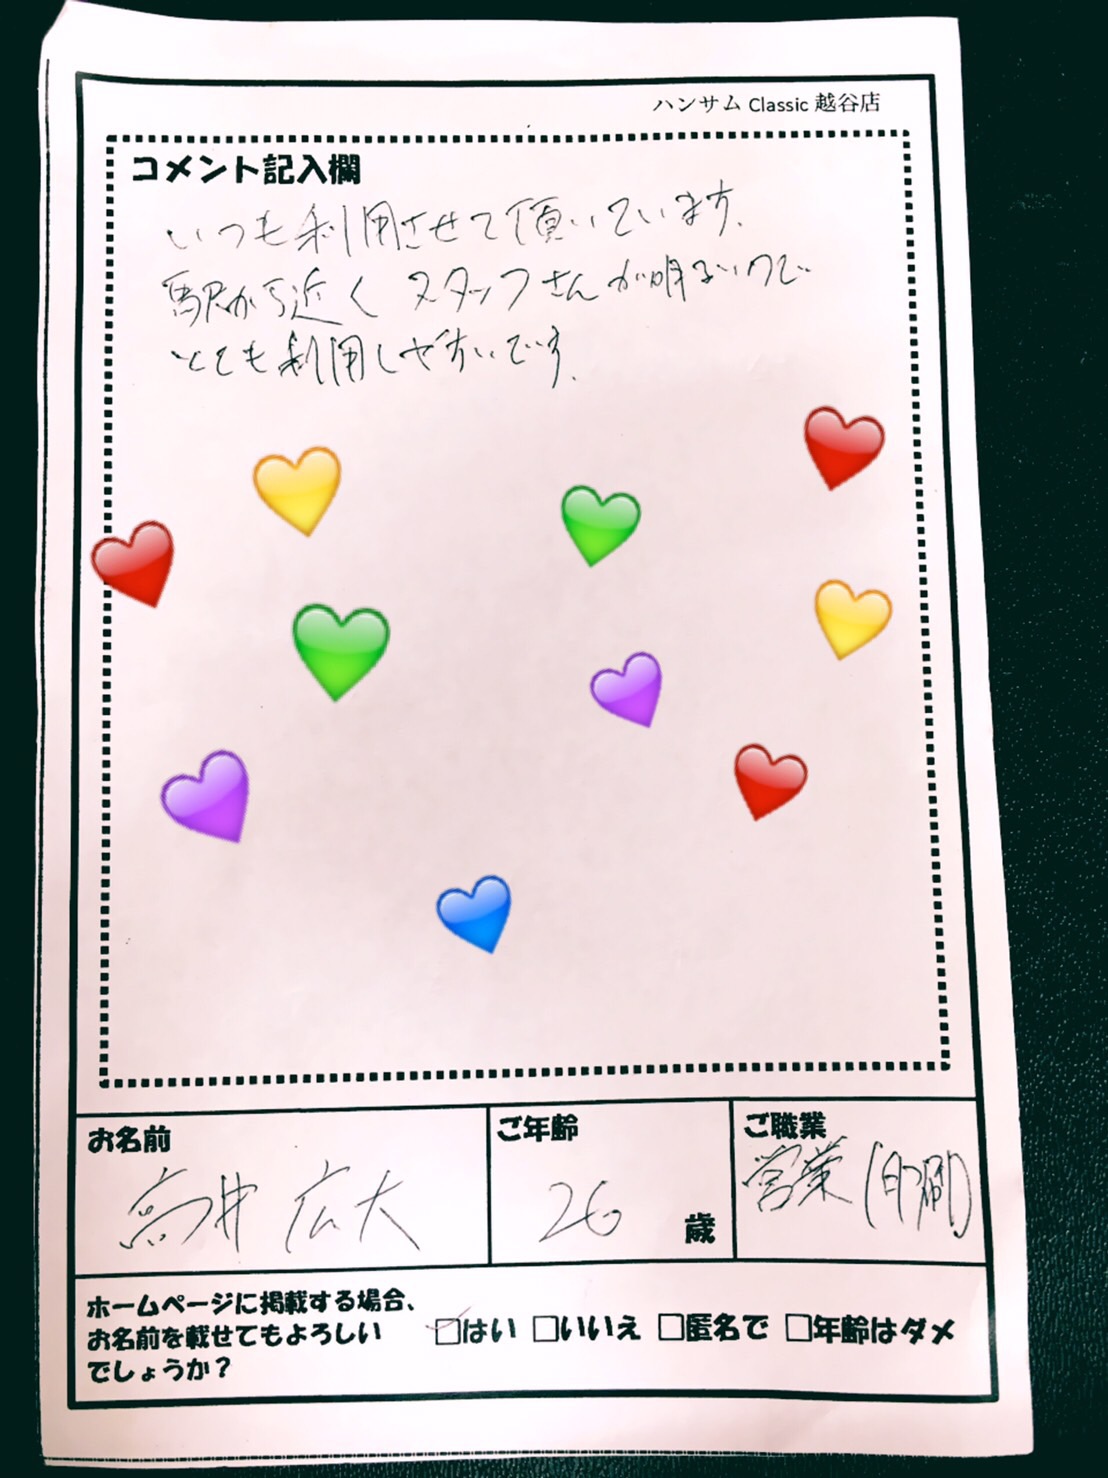 ハンサム Classic 越谷店
コメント記入欄
いつも利用させて頂いています.
駅から近く スタッフさんが明るいので
とても利用しやすいです.
お名前
高井 広大
ご年齢
26 歳
ご職業
営業 (印刷)
ホームページに掲載する場合、
お名前を載せてもよろしい
でしょうか？
□はい □いいえ □匿名で □年齢はダメ